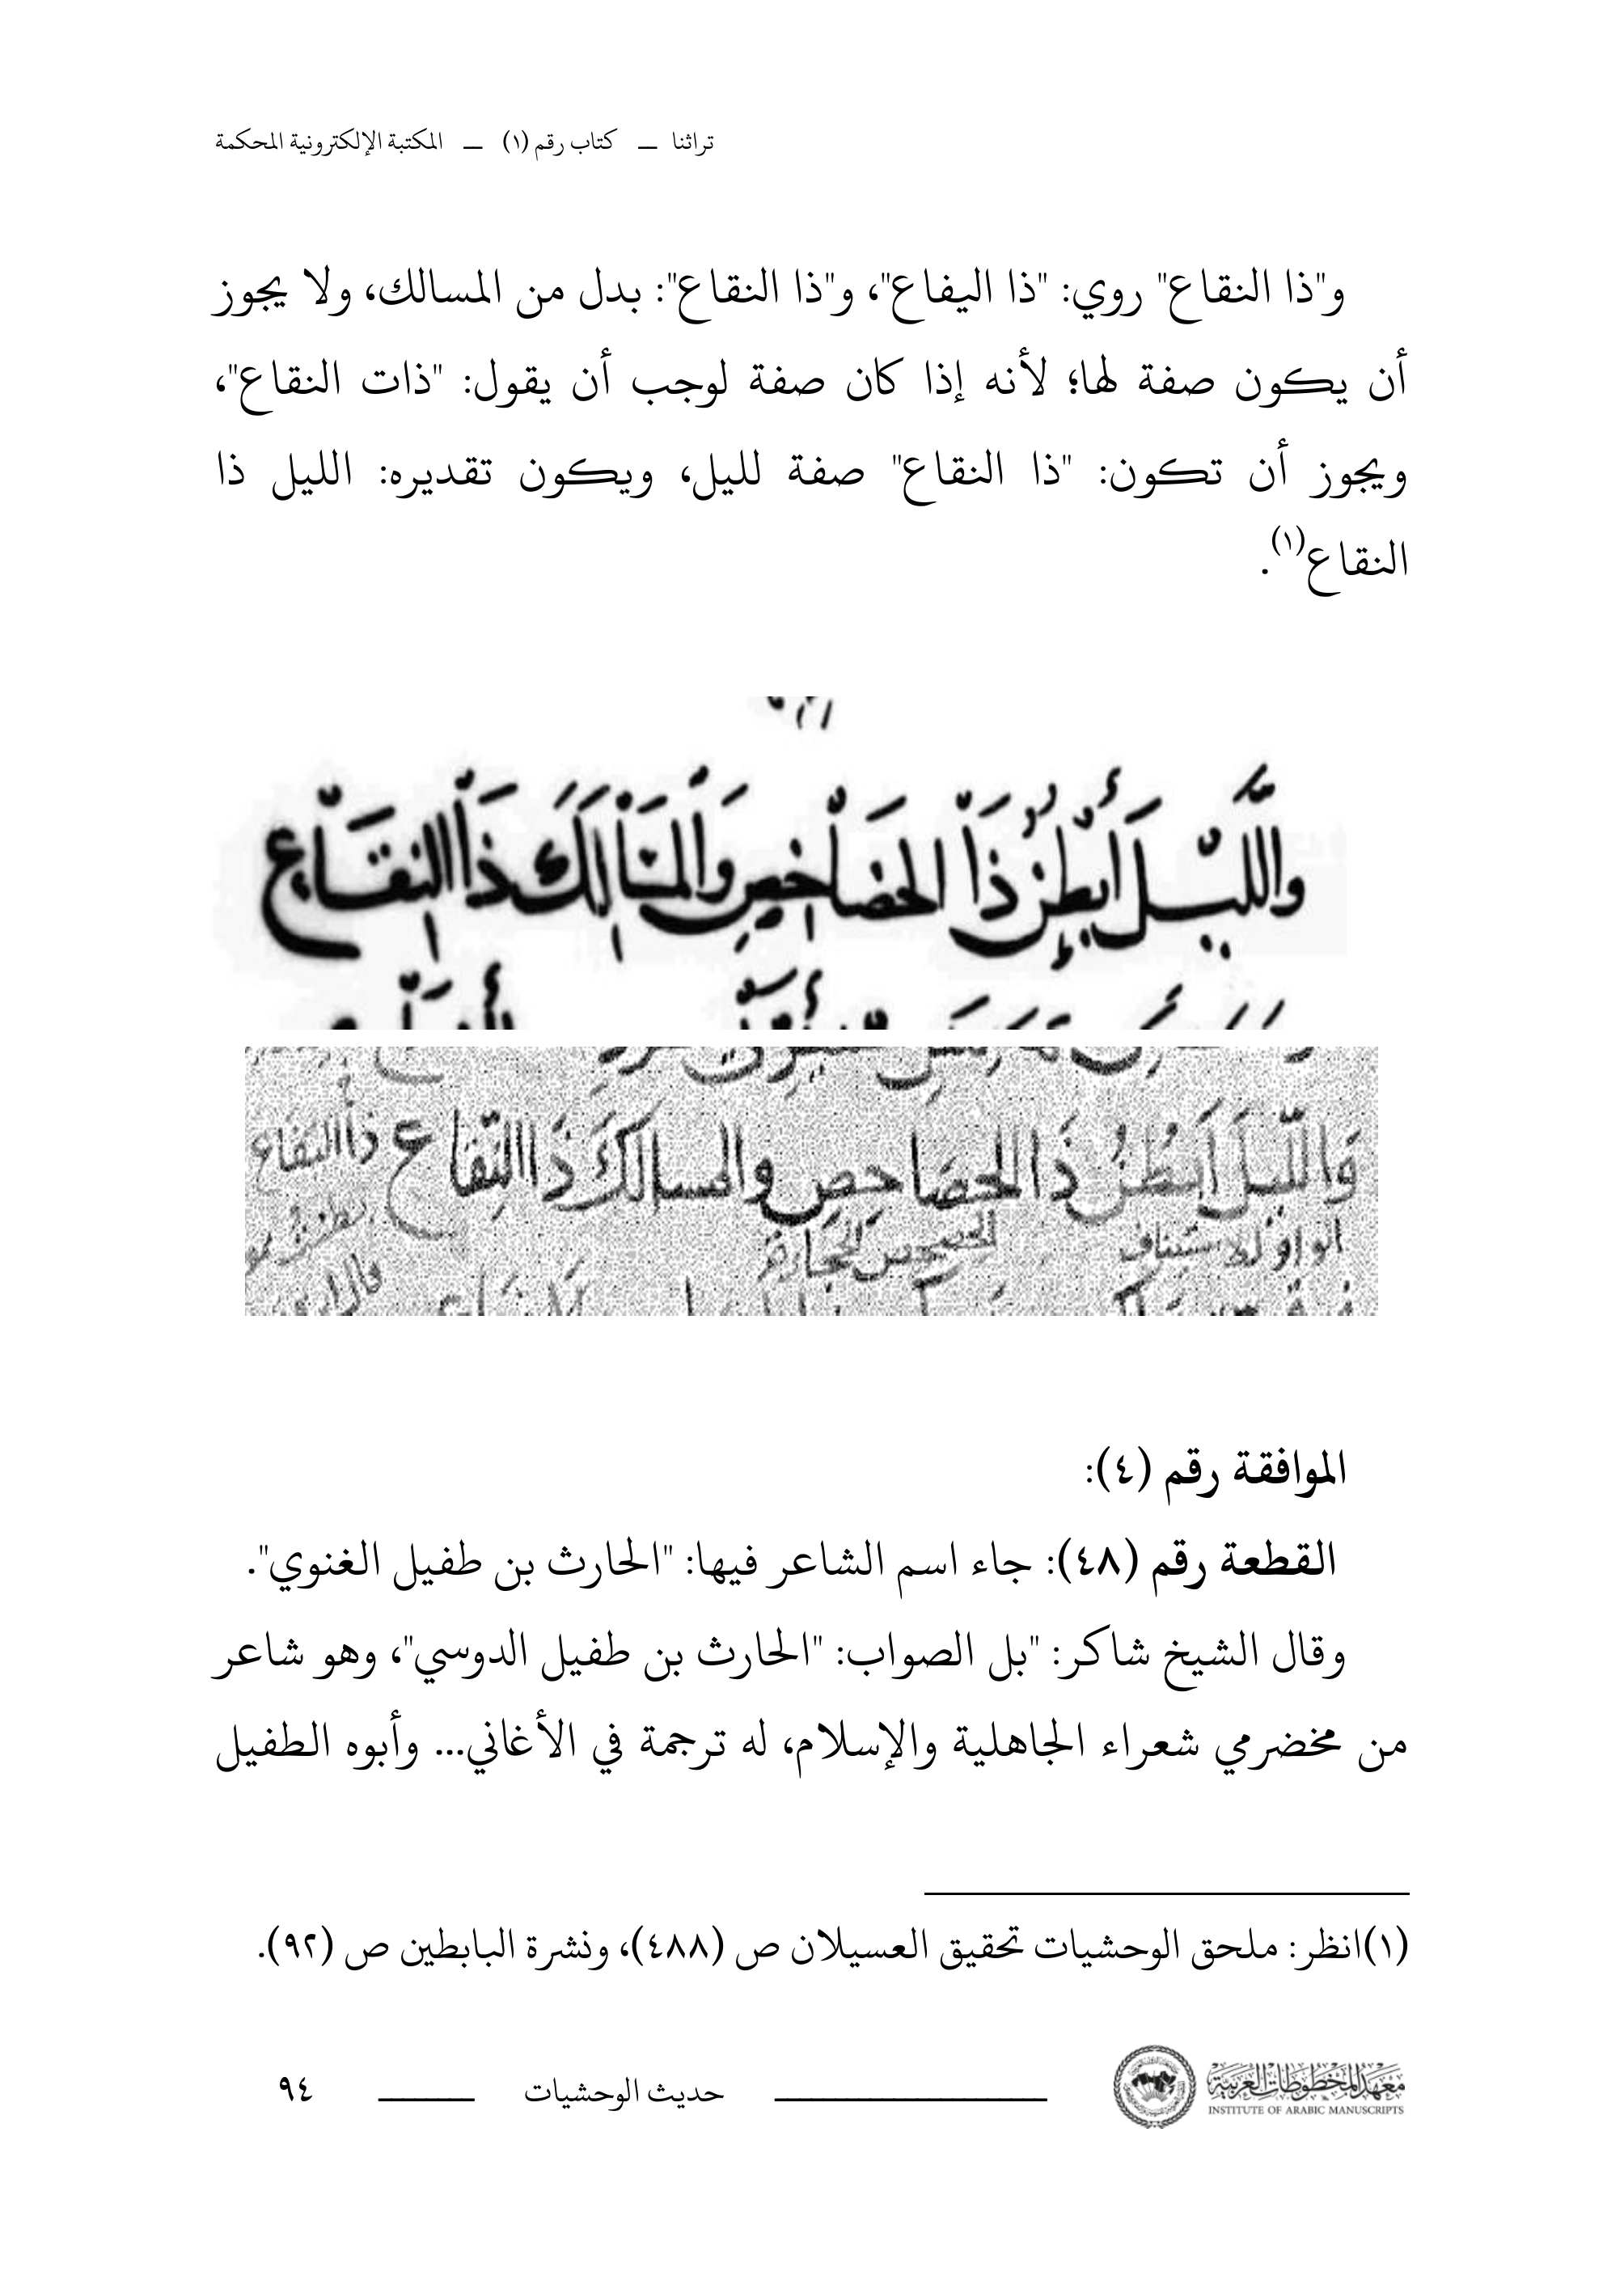 تراثنا — كتاب رقم (١) — المكتبة الإلكترونية المحكمة
و"ذا النقاع" روي: "ذا اليفاع"، و"ذا النقاع": بدل من المسالك، ولا يجوز
أن يكون صفة لها؛ لأنه إذا كان صفة لوجب أن يقول: "ذات النقاع"،
ويجوز أن تكون: "ذا النقاع" صفة لليل، ويكون تقديره: الليل ذا
النقاع(١).
والليل ذا النقاع
والليل ذا الحصاحص والمسالك ذا النقاع
الواو للاستئناف
الموافقة رقم (٤):
القطعة رقم (٤٨): جاء اسم الشاعر فيها: "الحارث بن طفيل الغنوي".
وقال الشيخ شاكر: "بل الصواب: "الحارث بن طفيل الدوسي"، وهو شاعر
من مخضرمي شعراء الجاهلية والإسلام، له ترجمة في الأغاني... وأبوه الطفيل
(١)انظر: ملحق الوحشيات تحقيق العسيلان ص (٤٨٨)، ونشرة البابطين ص (٩٢).
معهد المخطوطات العربية
INSTITUTE OF ARABIC MANUSCRIPTS
حديث الوحشيات
٩٤